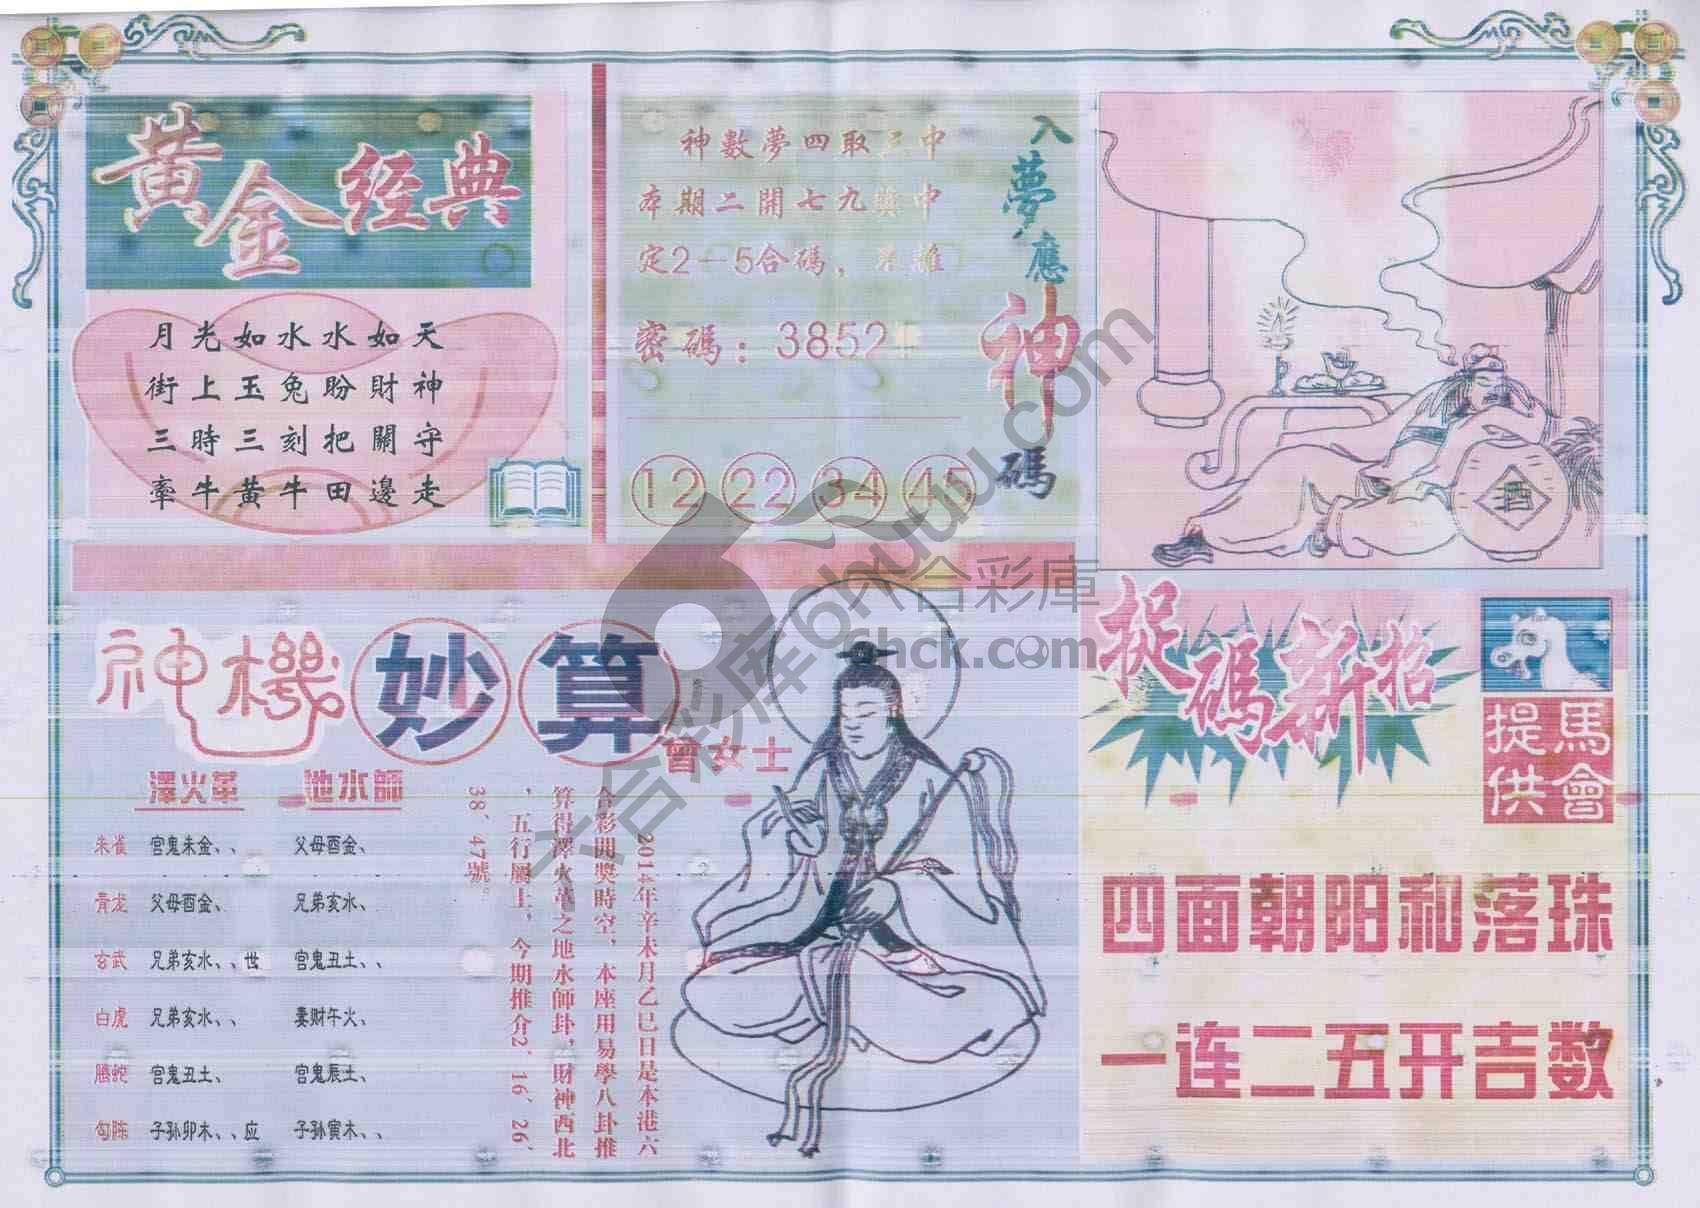 黃金经典
月光如水水如天
街上玉兔盼財神
三時三刻把關守
牽牛黃牛田邊走
神數夢四取三中
本期二開七九獎中
定2—5合碼，
密碼：3852
12 22 34 45
入夢應神碼
酒
神機妙算
會女士
澤火革 地水師
朱雀 宫鬼未金、、 父母酉金、
青龙 父母酉金、 兄弟亥水、
玄武 兄弟亥水、、世 宫鬼丑土、、
白虎 兄弟亥水、、 妻财午火、
腾蛇 宫鬼丑土、 宫鬼辰土、
勾陈 子孙卯木、、应 子孙寅木、、
2014年辛未月乙巳日是本港六
合彩開獎時空，本座用易學八卦推
算得澤火革之地水師卦，財神西北
，五行屬土，今期推介2、16、26、
38、47號。
捉碼新招
馬會提供
四面朝阳和落珠
一连二五开吉数
六合彩庫
6hck.com
六合彩库 6huuu.com